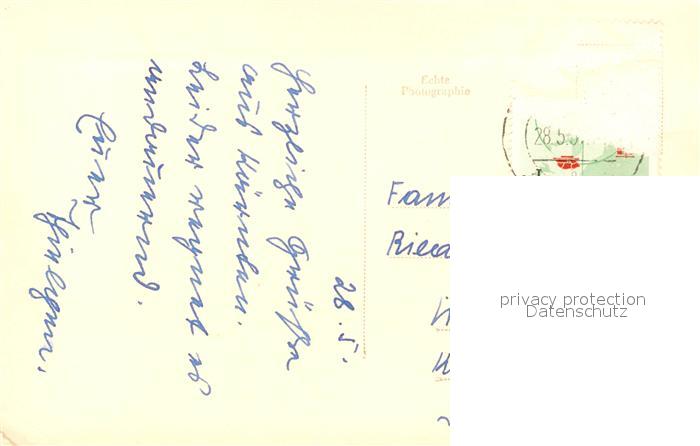 28. 5.
Herzliche Grüße
aus Kärnten.
Leider regnet es
andauernd.
Eure
Echte
Photographie
28.5.5
Fam
Ried
privacy protection
Datenschutz